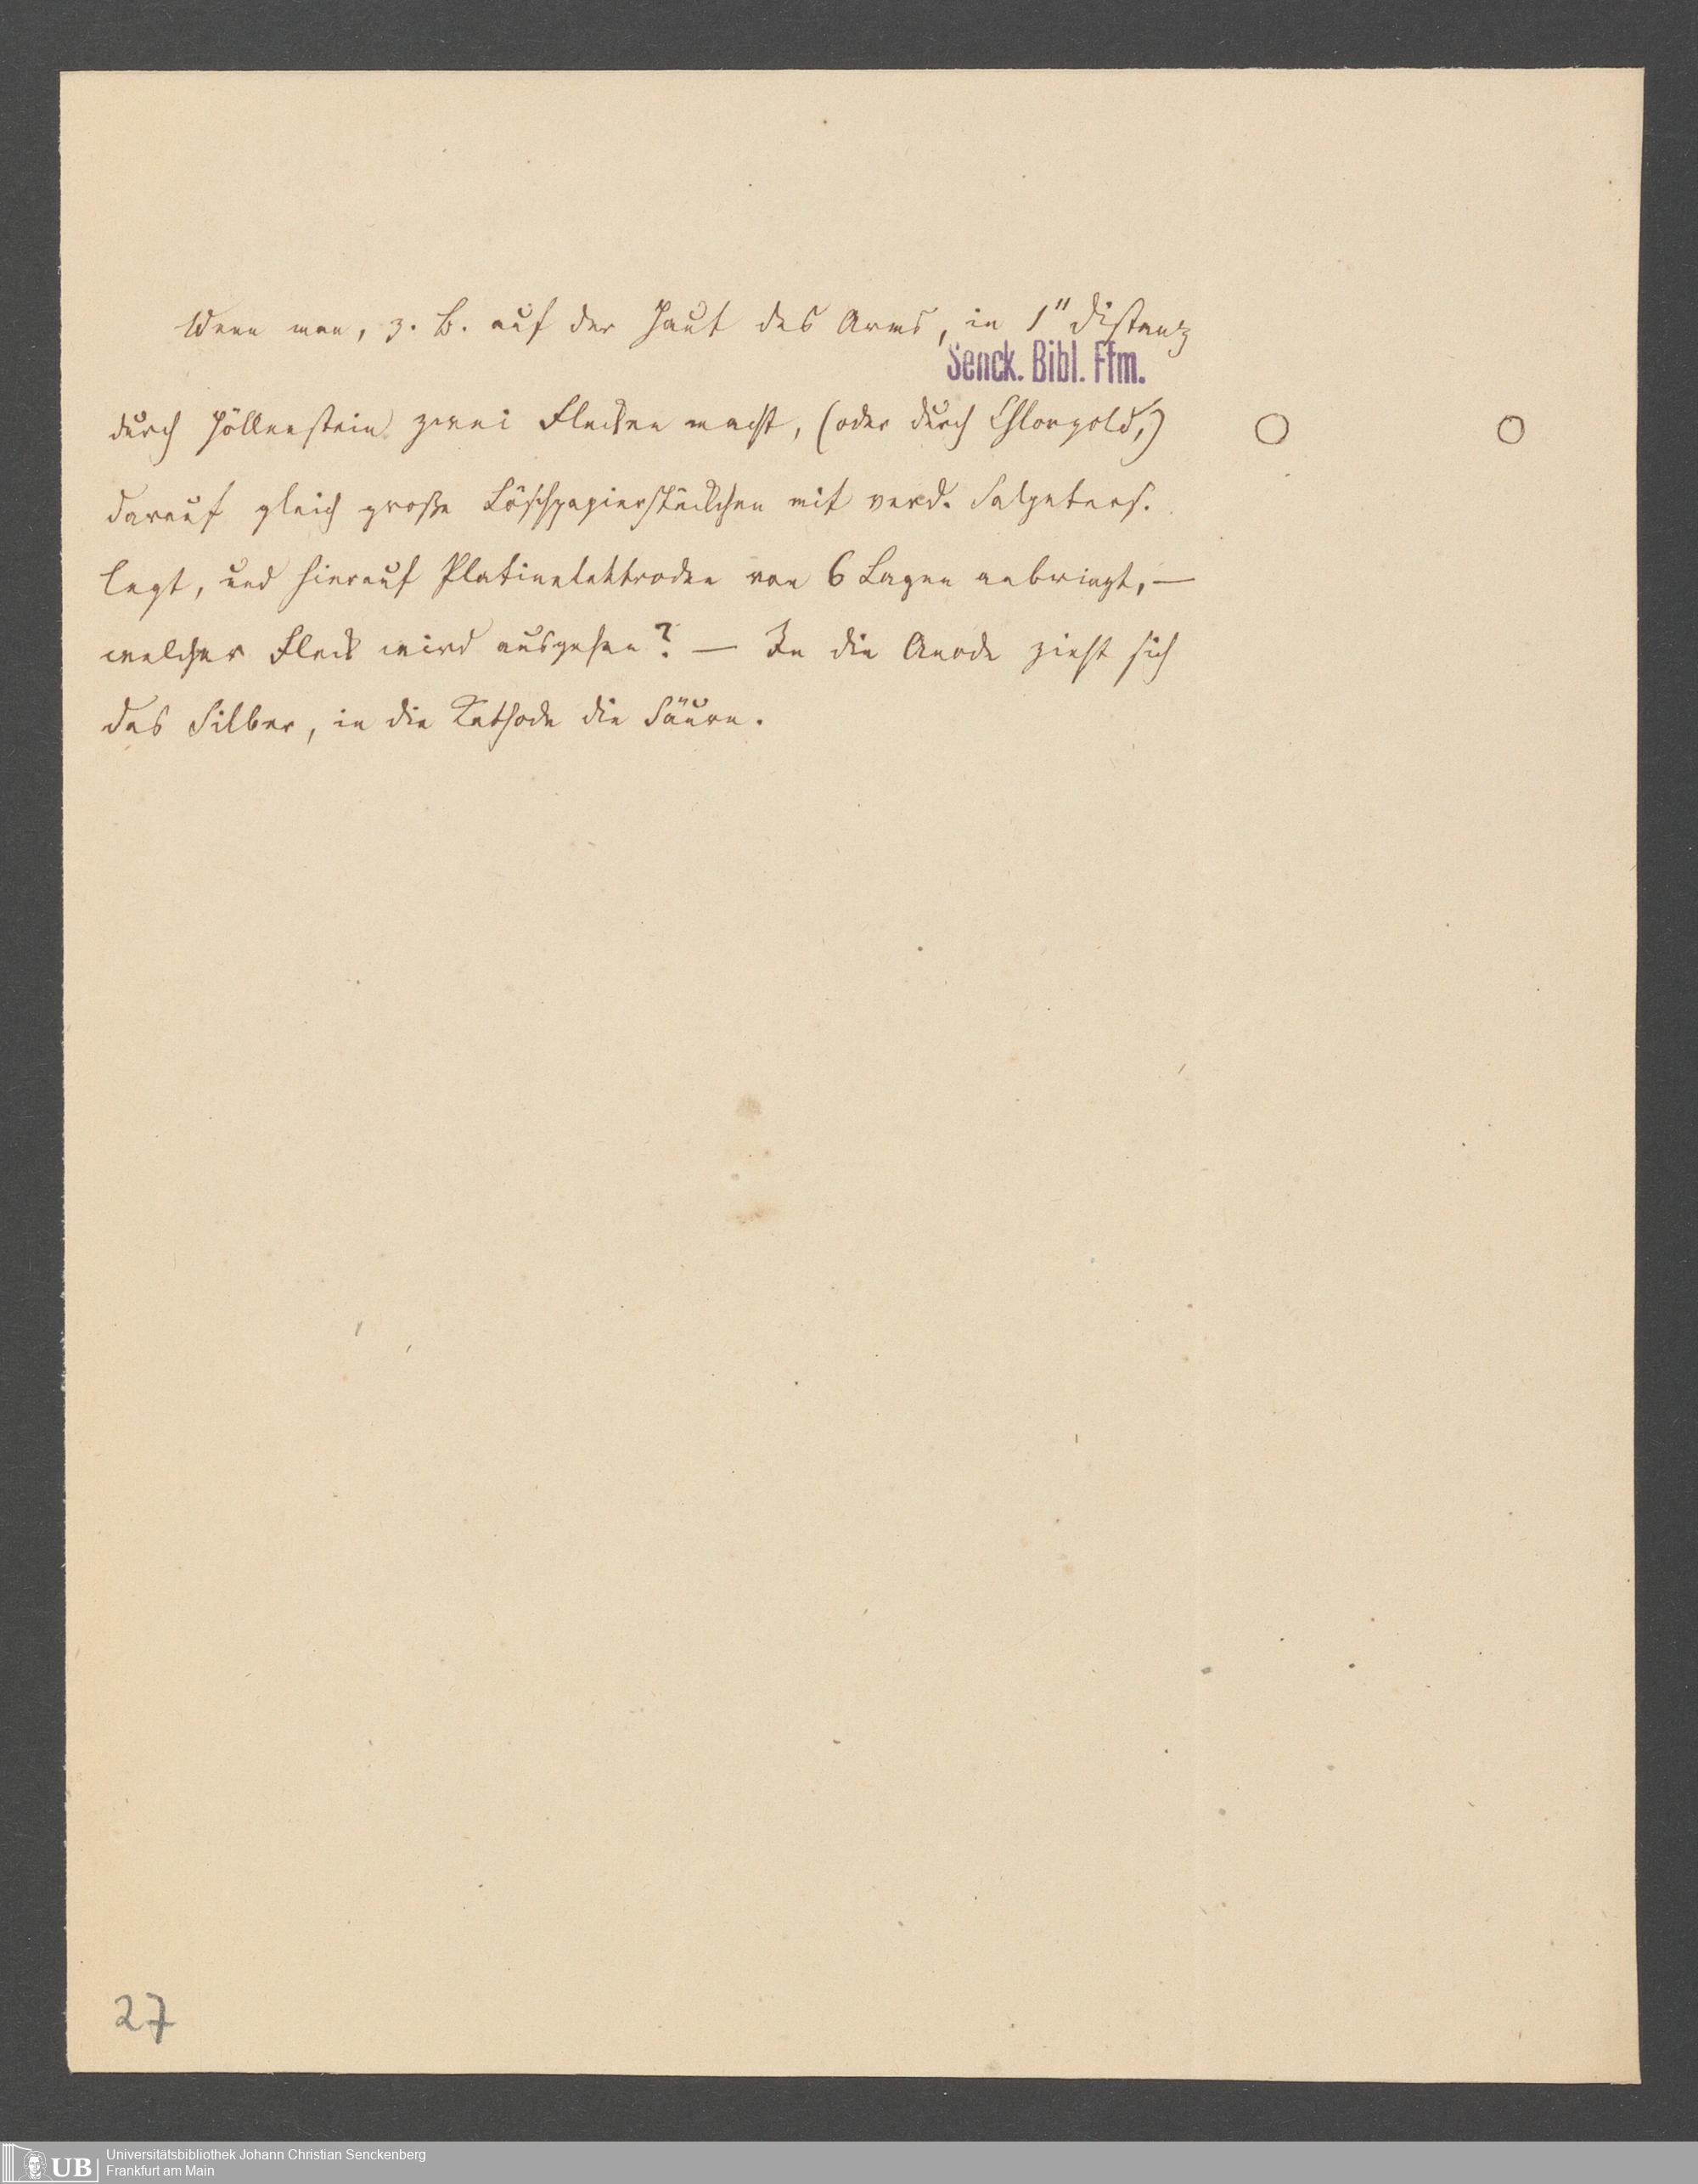 Wenn man, z. B. auf der Haut des Arms, in 1" Distanz
Senck. Bibl. Ffm.
durch Höllenstein zwei Flecken macht, (oder durch Chlorgold,)
darauf gleich große Löschpapierstückchen mit verd. Salpeters.
legt, und hierauf Platinelektroden von 6 Lagen anbringt, —
welcher Fleck wird ausgehen? — In die Anode zieht sich
das Silber, in die Kathode die Säure.
27
UB
Universitätsbibliothek Johann Christian Senckenberg
Frankfurt am Main